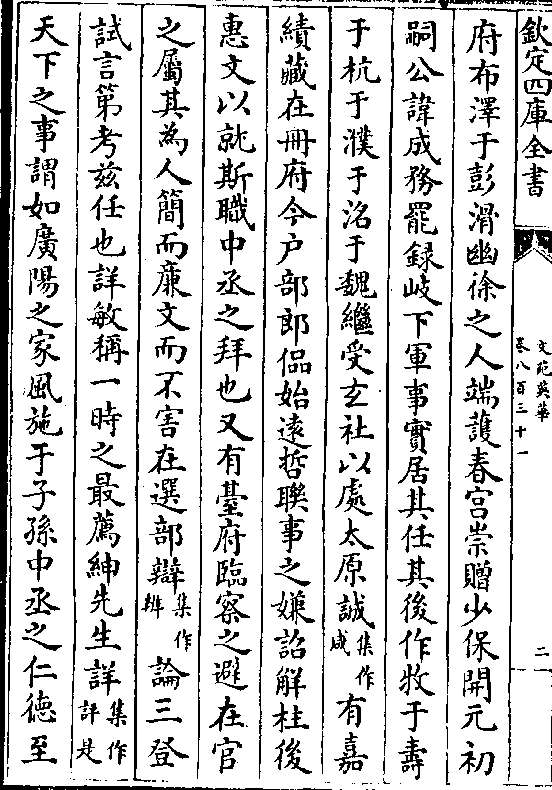 欽定四庫全書
文苑英華
卷八百三十一
二
府布澤于彭滑幽徐之人端護春宮崇贈少保開元初
嗣公諱成務罷録岐下軍事實居其任其後作牧于壽
于杭于濮于洺于魏繼受玄社以處太原誠集作咸有嘉
績藏在冊府今户部郎偘始遠哲聨事之嫌詔解柱後
惠文以就斯職中丞之拜也又有臺府臨察之避在官
之屬其為人簡而亷文而不害在選部辯集作辨論三登
試言第考兹任也詳敏稱一時之最薦紳先生詳集作評是
天下之事謂如廣陽之家風施于子孫中丞之仁德至